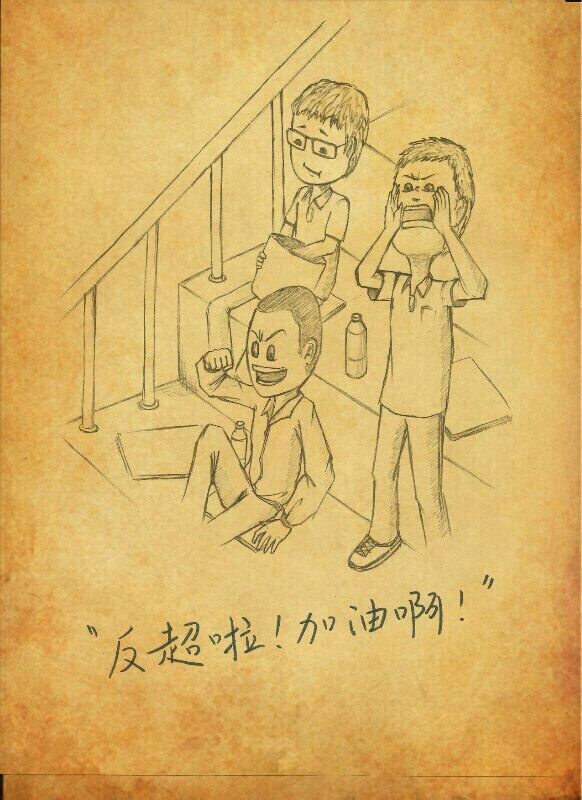 "反超啦！加油啊！"